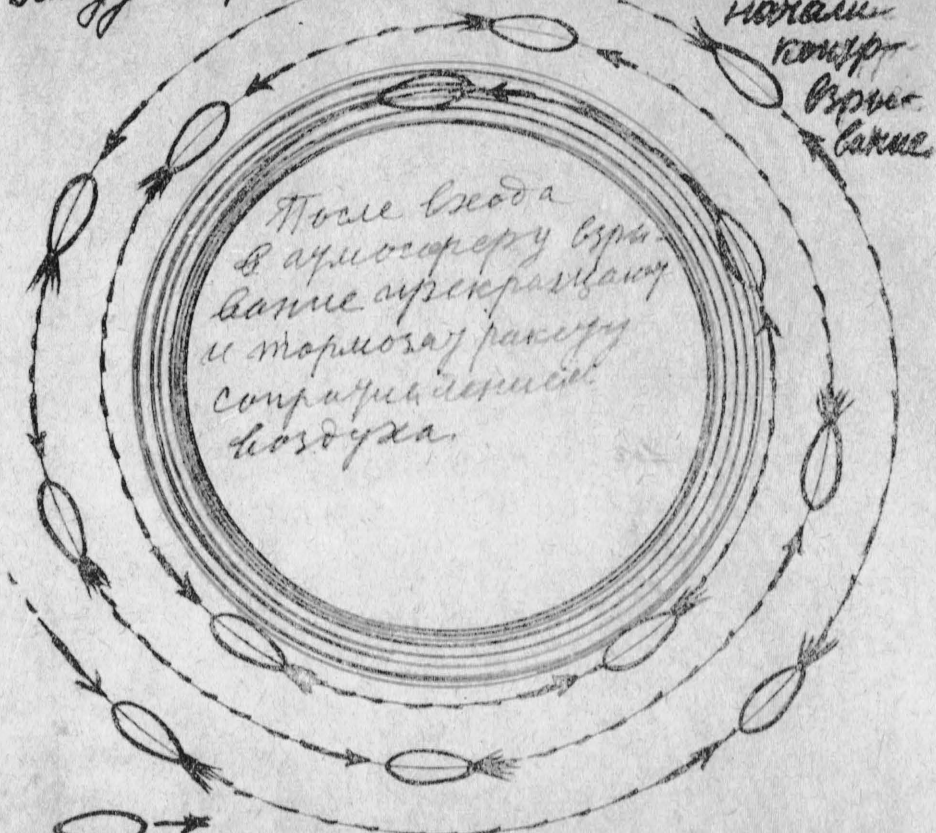 начали
контр
взры-
вание
После входа
в атмосферу взры-
вание прекращают
и тормозят ракету
сопротивлением
воздуха.